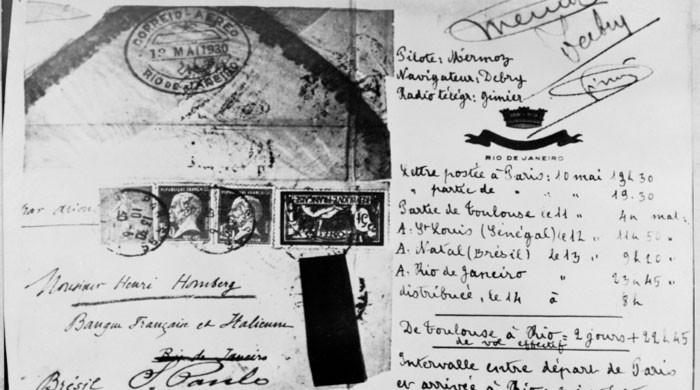 CORREIO-AEREO
12 MAI 1930
RIO DE JANEIRO
REPUBLIQUE FRANÇAISE
REPUBLIQUE FRANÇAISE
REPUBLIQUE FRANÇAISE
par avion
Monsieur Henri Homberg
Banque Française et Italienne
Rio de Janeiro
S. Paulo
Brésil
Debry
Gimié
Pilote: Mermoz
Navigateur: Debry
Radio télégr: Gimier
RIO DE JANEIRO
Lettre postée à Paris: 10 mai 19h30
" partie de " " " 19.30
Partie de Toulouse le 11 " 4h mat:
A. St Louis (Sénégal) le 12 " 11h50 "
A. Natal (Brésil) le 13 " 9h20 "
A. Rio de Janeiro " 23h45 "
distribuée, le 14 à 8h
De Toulouse à Rio = 2 jours + 22h45
de vol effectif
Intervalle entre départ de Paris
et arrivée à Rio